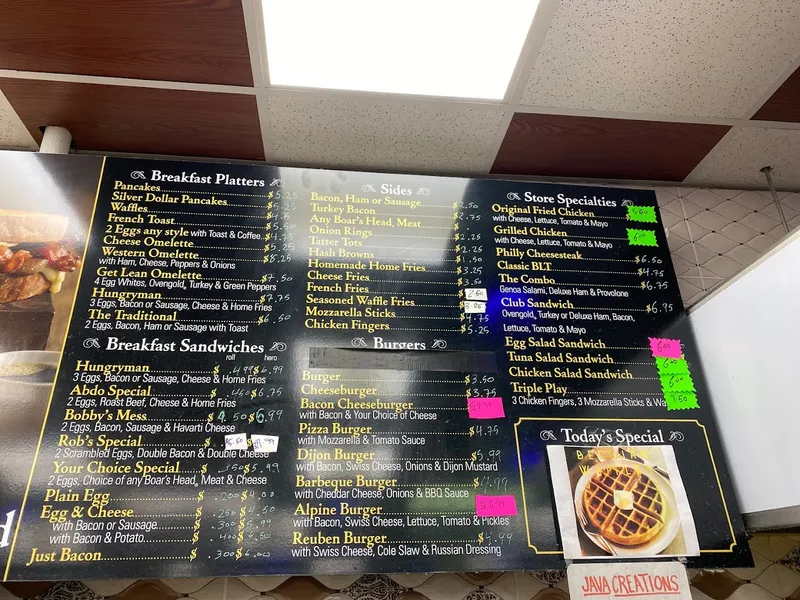 Breakfast Platters
Pancakes $5.25
Silver Dollar Pancakes
Waffles
French Toast
2 Eggs any style with Toast & Coffee
Cheese Omelette $5.25
Western Omelette $8.25
with Ham, Cheese, Peppers & Onions
Get Lean Omelette $7.50
4 Egg Whites, Ovengold, Turkey & Green Peppers
Hungryman $7.75
3 Eggs, Bacon or Sausage, Cheese & Home Fries
The Traditional $6.50
2 Eggs, Bacon, Ham or Sausage with Toast
Breakfast Sandwiches
roll hero
Hungryman $6.99
3 Eggs, Bacon or Sausage, Cheese & Home Fries
Abdo Special $6.75
2 Eggs, Roast Beef, Cheese & Home Fries
Bobby's Mess $4.50 $6.99
2 Eggs, Bacon, Sausage & Havarti Cheese
Rob's Special
2 Scrambled Eggs, Double Bacon & Double Cheese
Your Choice Special $5.99
2 Eggs, Choice of any Boar's Head, Meat & Cheese
Plain Egg $4.00
Egg & Cheese $4.50
with Bacon or Sausage $5.99
with Bacon & Potato $6.50
Just Bacon $6.00
Sides
Bacon, Ham or Sausage $2.50
Turkey Bacon $2.75
Any Boar's Head, Meat
Onion Rings $2.25
Tatter Tots $2.25
Hash Browns $1.50
Homemade Home Fries $3.25
Cheese Fries $3.50
French Fries
Seasoned Waffle Fries
Mozzarella Sticks $4.75
Chicken Fingers $5.25
Burgers
Burger $3.50
Cheeseburger $3.75
Bacon Cheeseburger
with Bacon & Your Choice of Cheese
Pizza Burger $4.75
with Mozzarella & Tomato Sauce
Dijon Burger $5.99
with Bacon, Swiss Cheese, Onions & Dijon Mustard
Barbeque Burger $4.99
with Cheddar Cheese, Onions & BBQ Sauce
Alpine Burger
with Bacon, Swiss Cheese, Lettuce, Tomato & Pickles
Reuben Burger $4.99
with Swiss Cheese, Cole Slaw & Russian Dressing
Store Specialties
Original Fried Chicken
with Cheese, Lettuce, Tomato & Mayo
Grilled Chicken
with Cheese, Lettuce, Tomato & Mayo
Philly Cheesesteak $6.50
Classic BLT $4.75
The Combo $6.75
Genoa Salami, Deluxe Ham & Provolone
Club Sandwich $6.95
Ovengold, Turkey or Deluxe Ham, Bacon,
Lettuce, Tomato & Mayo
Egg Salad Sandwich 6.00
Tuna Salad Sandwich 6.00
Chicken Salad Sandwich 6.00
Triple Play 7.50
3 Chicken Fingers, 3 Mozzarella Sticks &
Today's Special
BELGIAN
JAVA CREATIONS